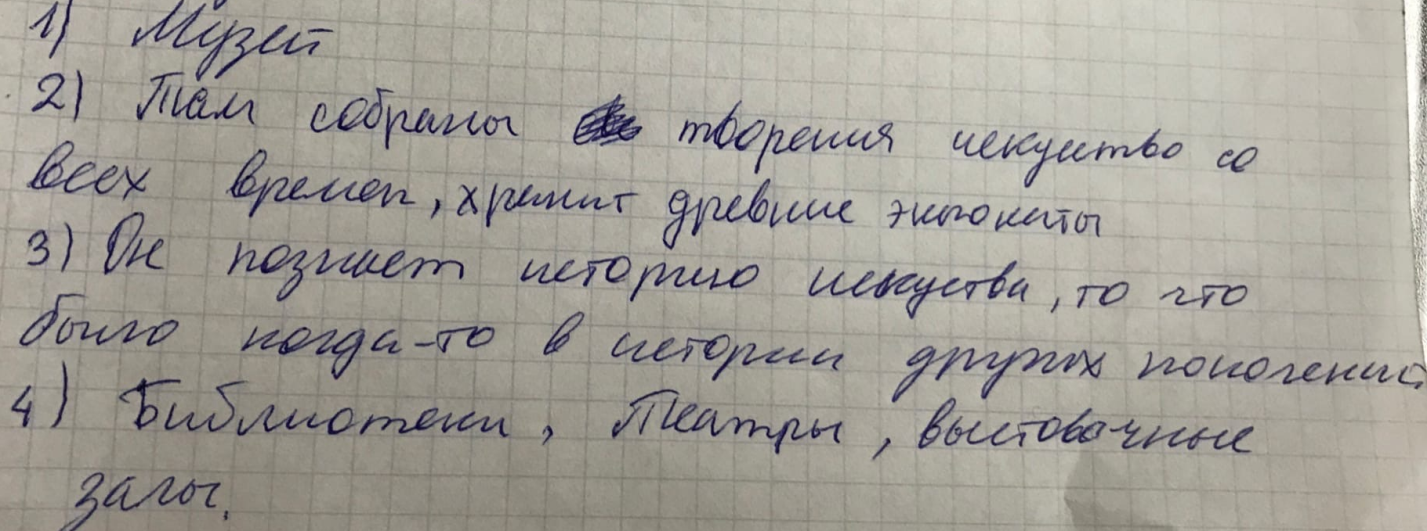 1) Музей
2) Там собраны творения искуство со
всех времен, хранит древние экспонаты
3) Он познает историю искуства, то что
было когда-то в истории других поколений
4) Библиотеки, Театры, выстовочные
залы.